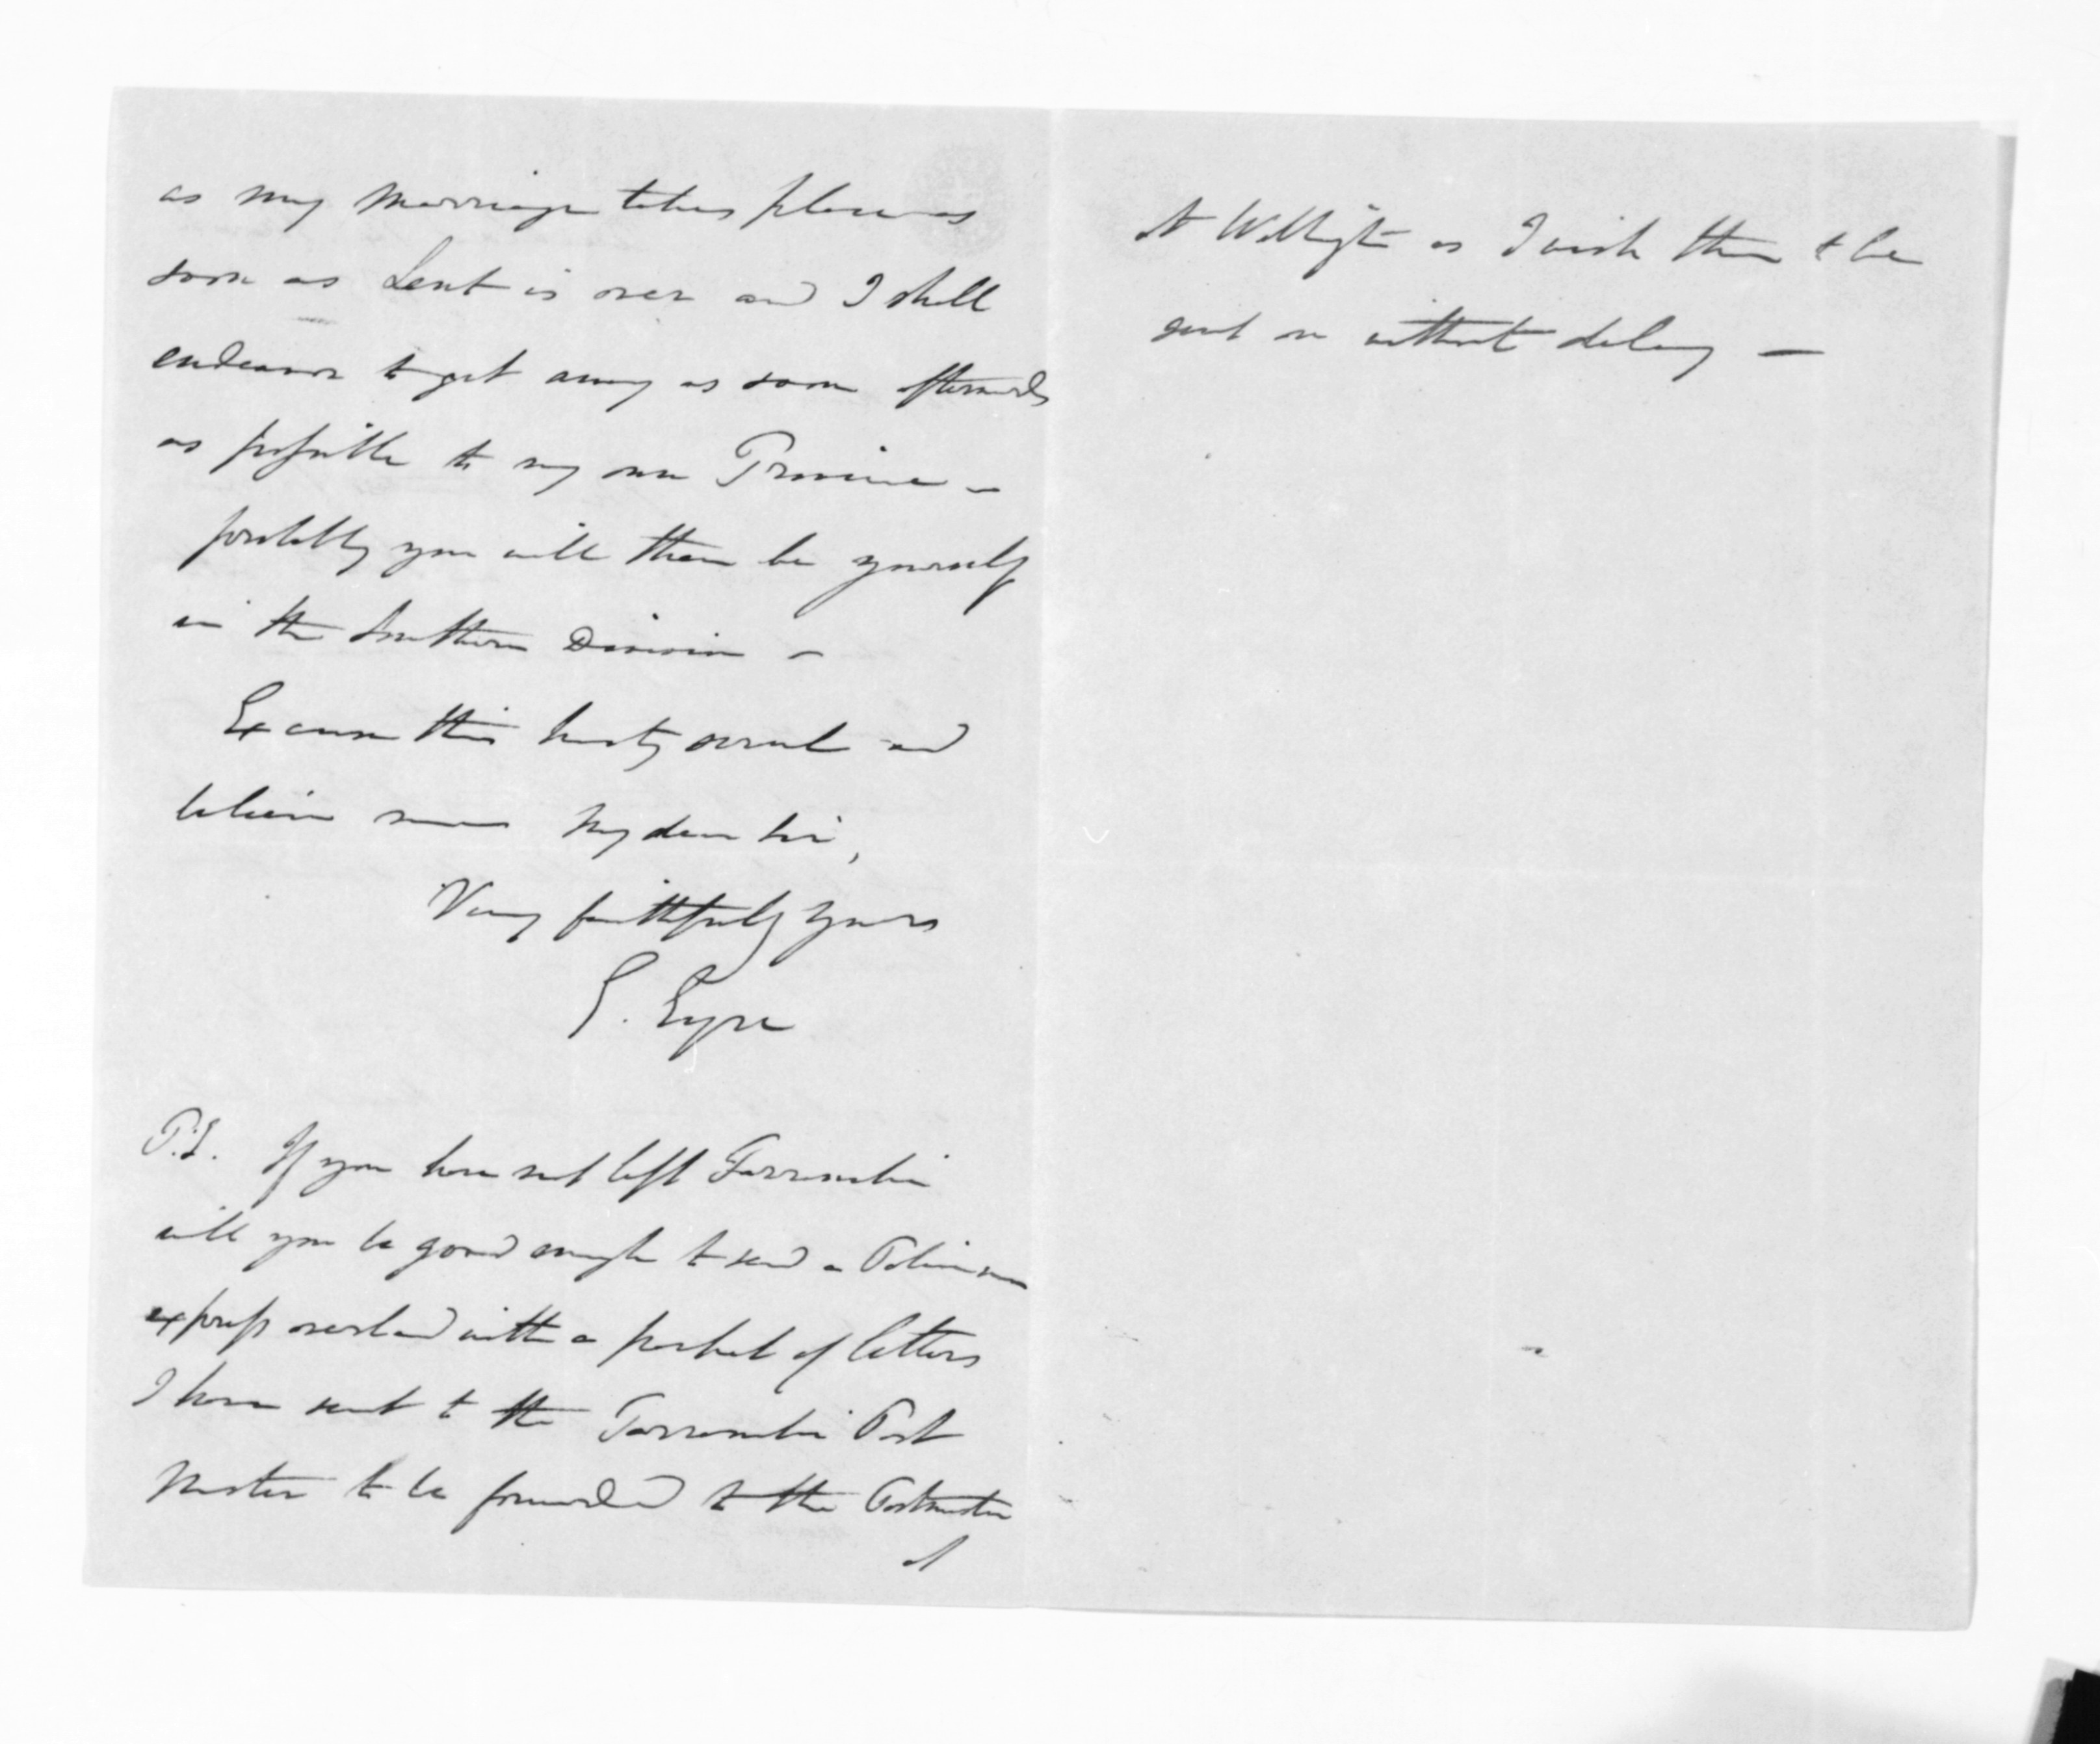 as my marriage takes place as
soon as Lent is over and I shall
endeavor to get away as soon afterwards
as possible to my own Province –
probably you will then be yourself
in the Southern Division –
Excuse this hasty scrawl and
believe me My dear Sir,
Very faithfully yours
E. Eyre
P.S. If you have not left Taranaki
will you be good enough to send a Policeman
express overland with a packet of letters
I have sent to the Taranaki Post
Master to be forwarded to the Postmaster
at
At Wellington as I wish them to be
sent on without delay –